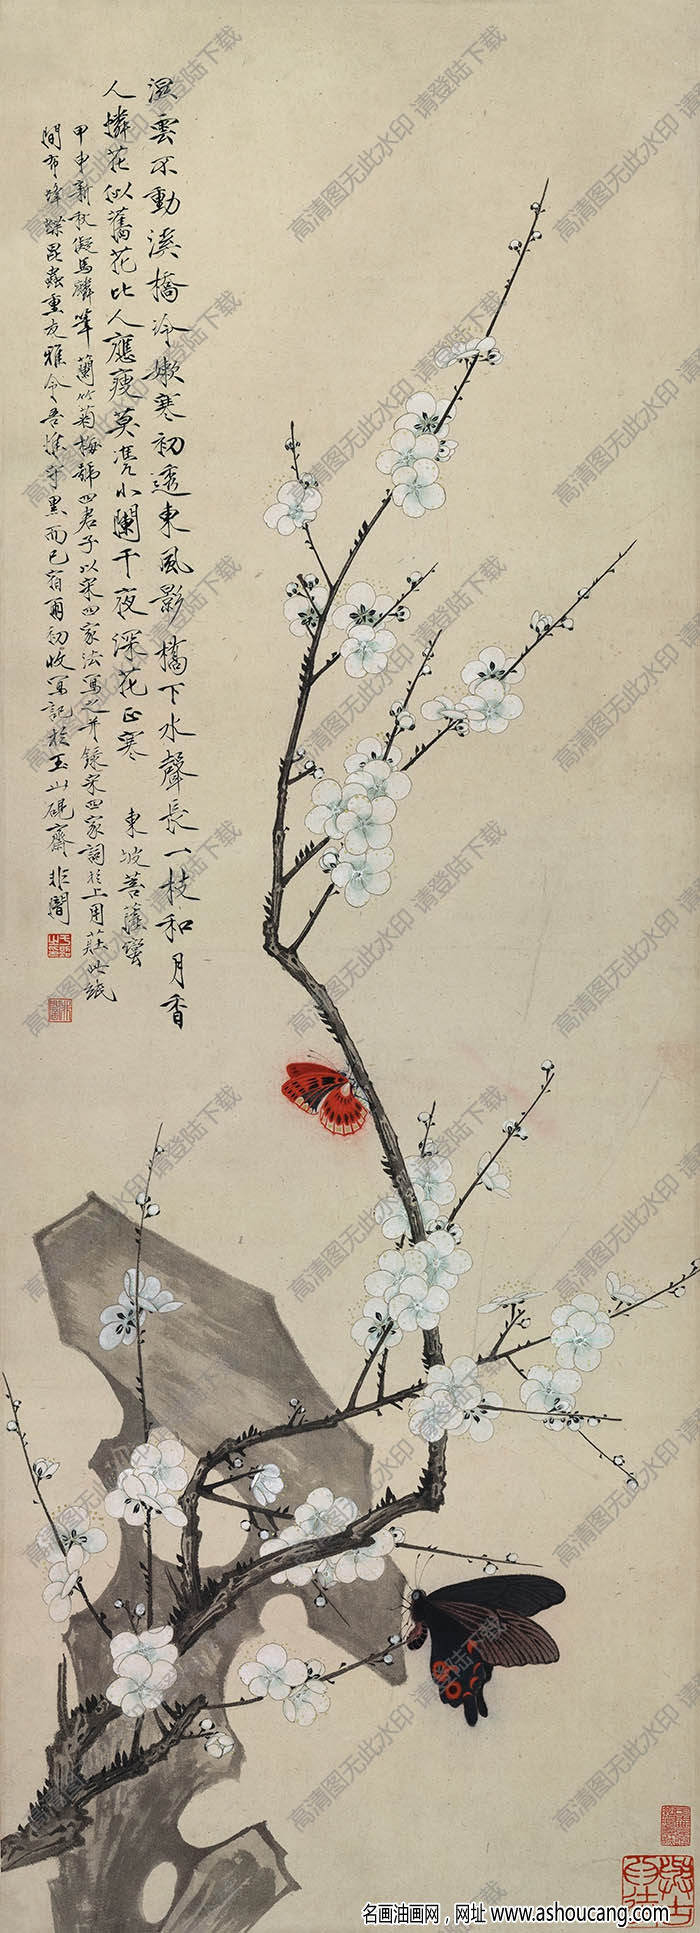 溼雲不動溪橋冷嫩寒初透東風影橋下水聲長一枝和月香
人憐花似舊花比人應瘦莫凴小闌干夜深花正寒 東坡菩薩蠻
甲申新秋儗馬麟筆蘭竹菊梅號四君子以宋四家法寫之并錄宋四家詞於上用莊此紙
間布蜂蝶昆蟲雅令吾惟守黑而已宿雨初收寫記於玉山硯齋非闇
高清图无此水印 请登陆下载
名画油画网，网址 www.ashoucang.com